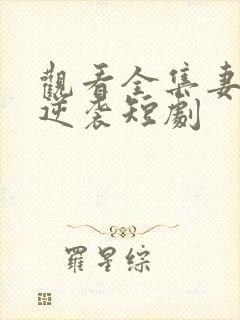 觀看全集妻
逆袭短劇
羅星綜